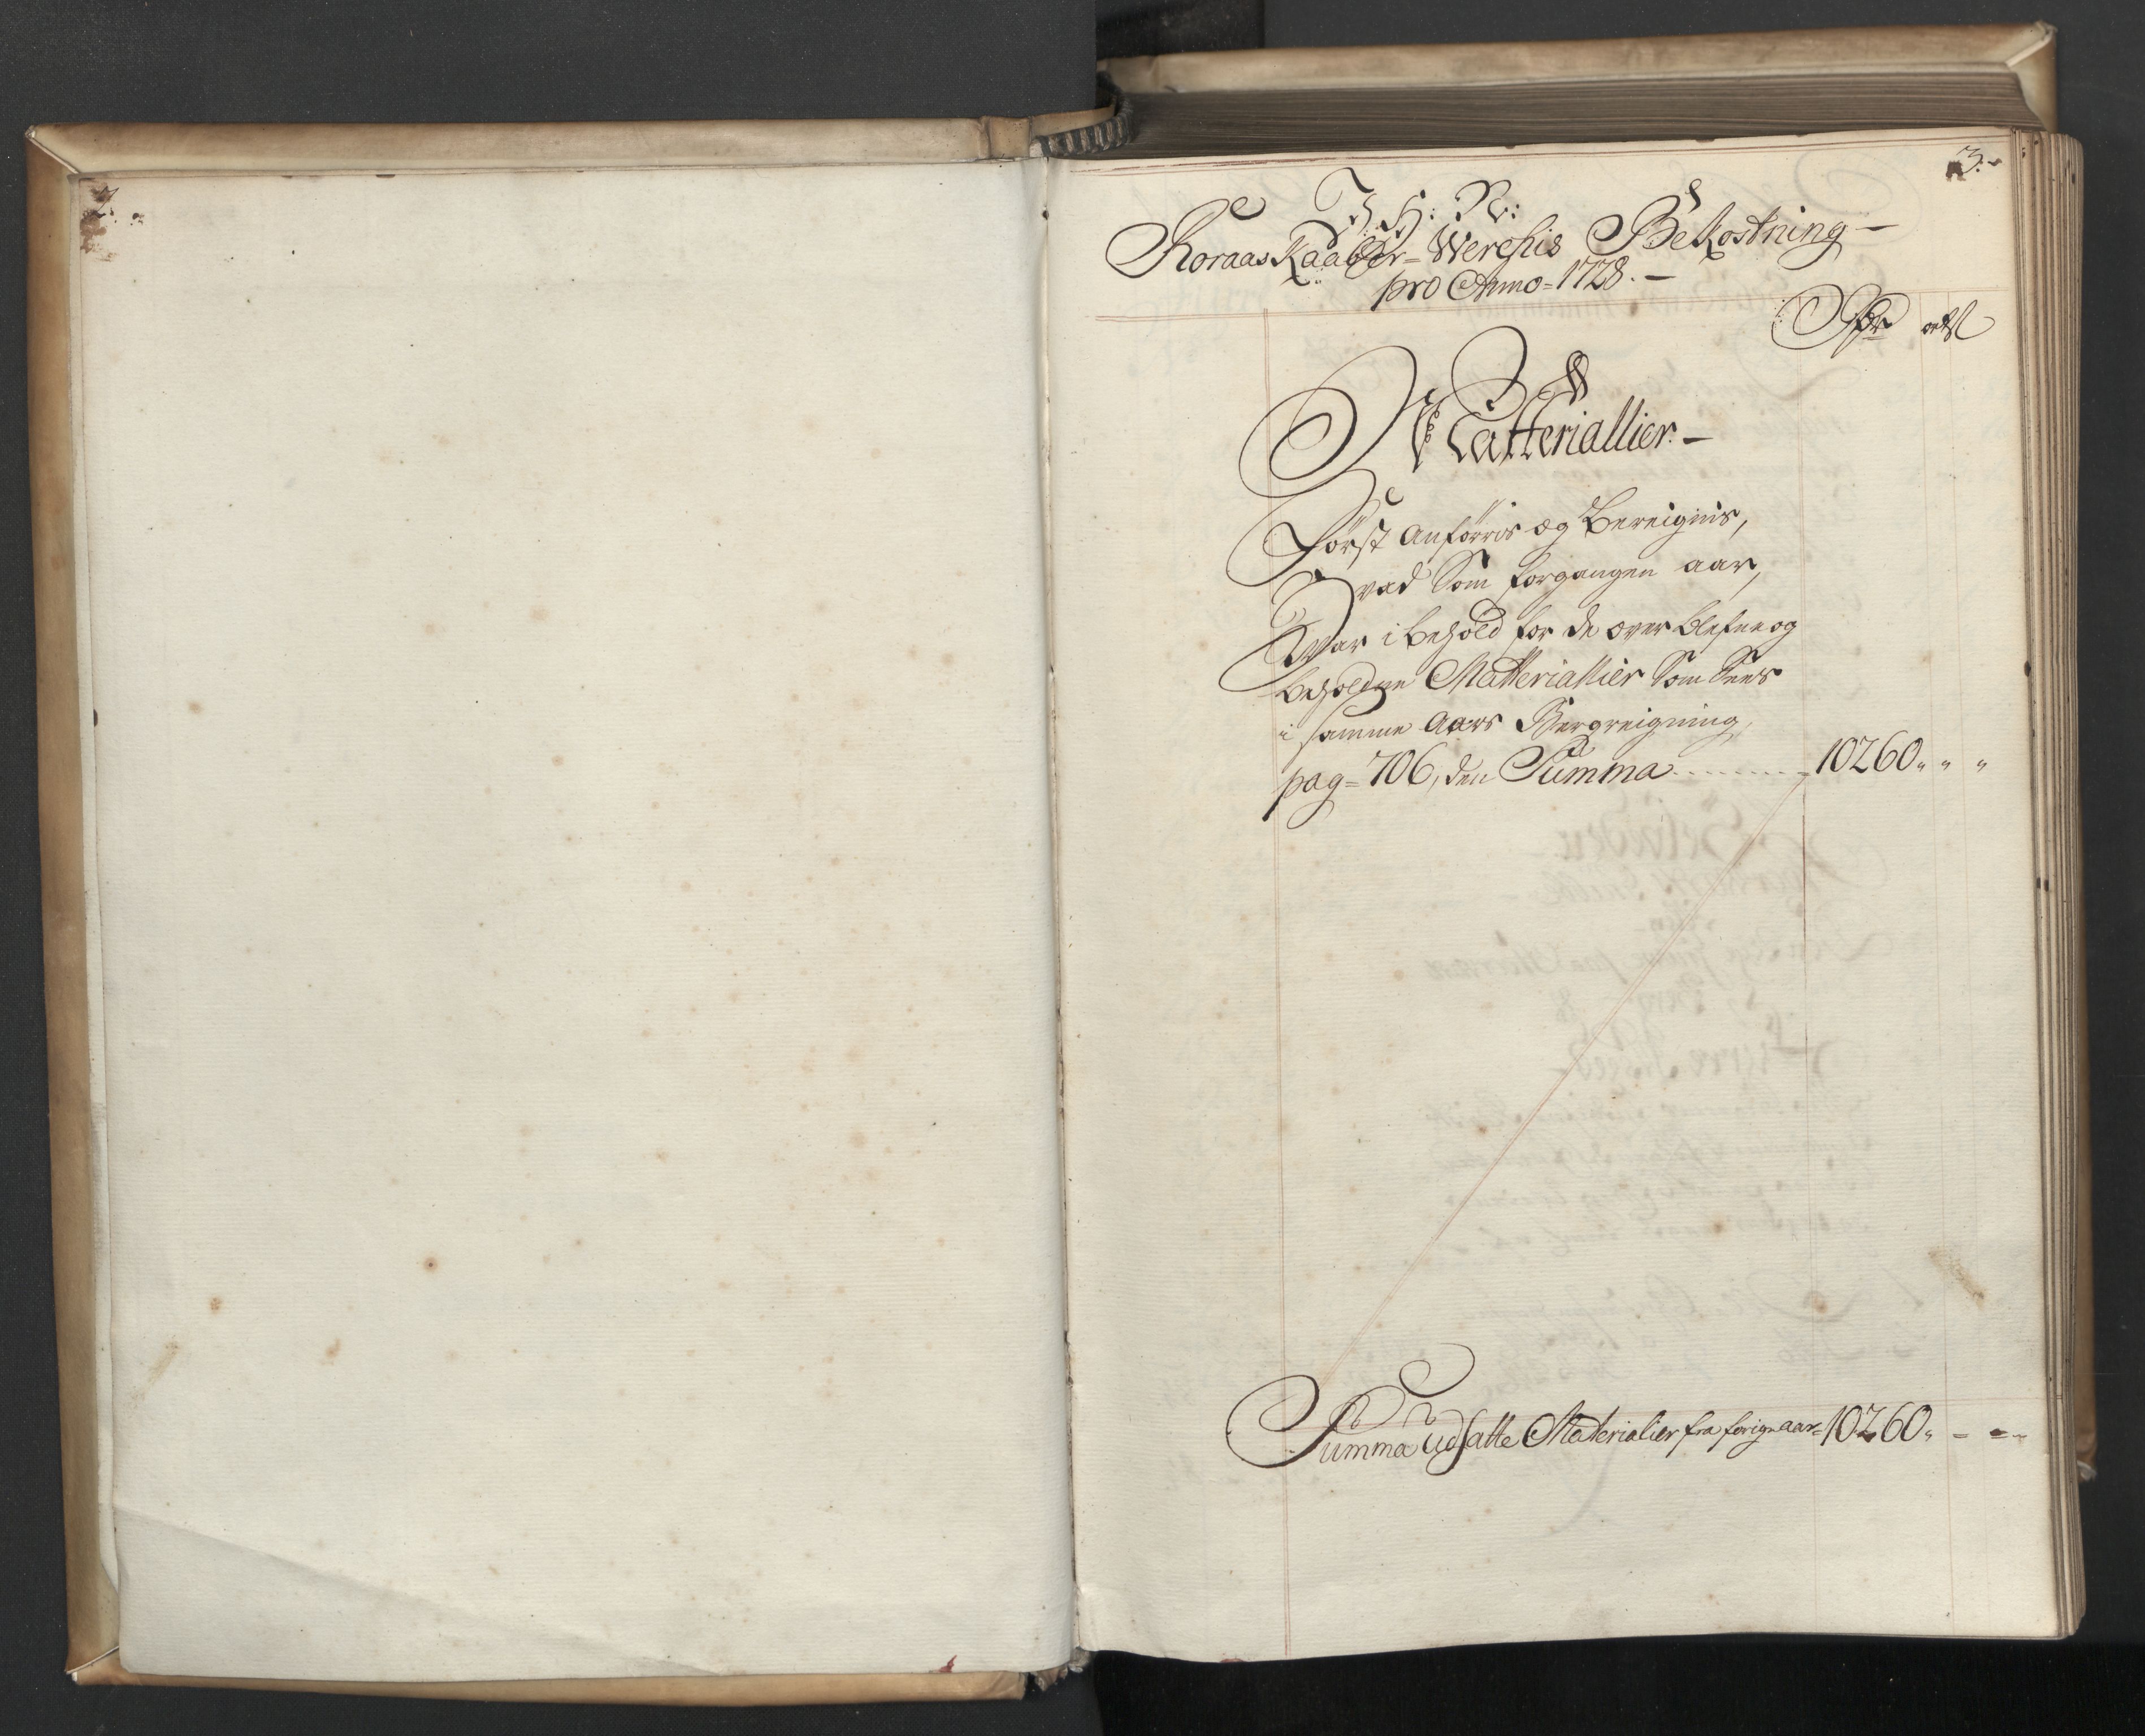 2.
3.
J. H. N:
Roraas Kaaber-Werchis Bekostning
pro Anno=1728.
Rdr ort ß
Matteriallier.
Först Anförris og Bereignis,
Hvad Som forgangen aar,
War i behold for de over blefne og
beholdne Matteriallier Som Sees
i samme Aars Bergreigning,
pag=706, den Summa 10260 " " "
Summa Udsatte Materialier fra forige aar=10260 " - -